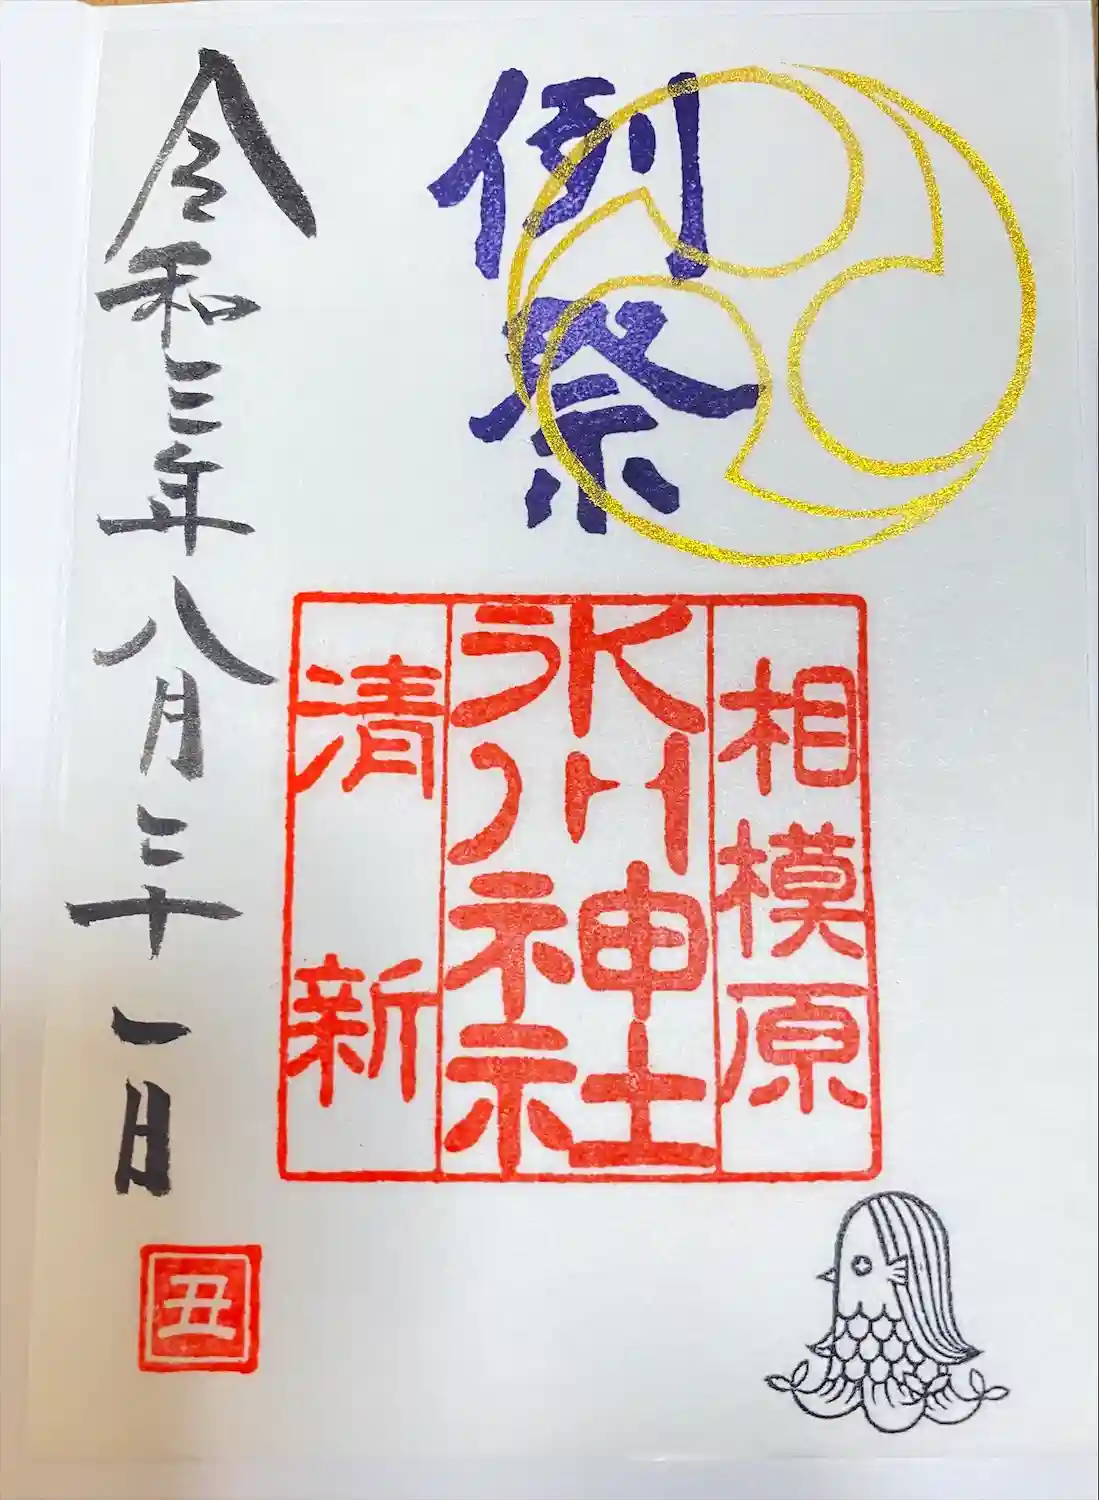 例祭
相模原
氷川神社
清新
令和三年八月三十一日
丑